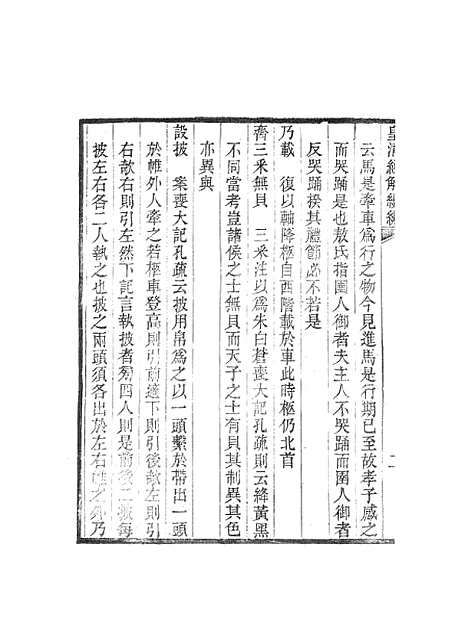 皇清經解續編
云馬是牽車爲行之物今見進馬是行期已至故孝子感之
而哭踊是也敖氏指圉人御者夫主人不哭踊而圉人御者
反哭踊揆其禮節必不若是
乃載　復以軸降柩自西階載於車此時柩仍北首
齊三采無貝　三采注以爲朱白蒼喪大記孔疏則云絳黃黑
不同當考豈諸侯之士無貝而天子之士有貝其制異其色
亦異與
設披　案喪大記孔疏云披用帛爲之以一頭繫於帶出一頭
於帷外人牽之若柩車登高則引前適下則引後欹左則引
右欹右則引左然下記言執披者旁四人則是前後二披每
披左右各二人執之也披之兩頭須各出於左右帷之外乃